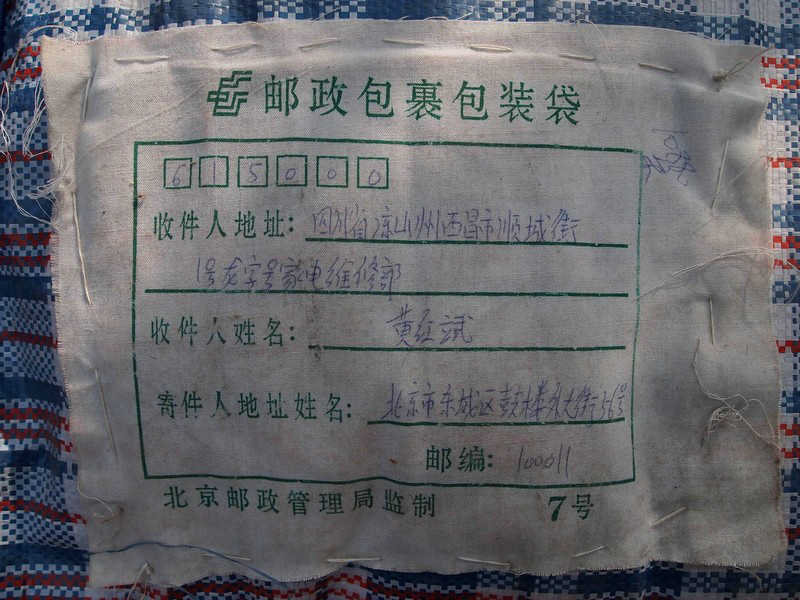 邮政包裹包装袋
615000
收件人地址: 四川省凉山州西昌市顺城街
1号龙字号家电维修部
收件人姓名: 黄
寄件人地址姓名: 北京市东城区鼓楼东大街56号
邮编: 100011
北京邮政管理局监制 7号